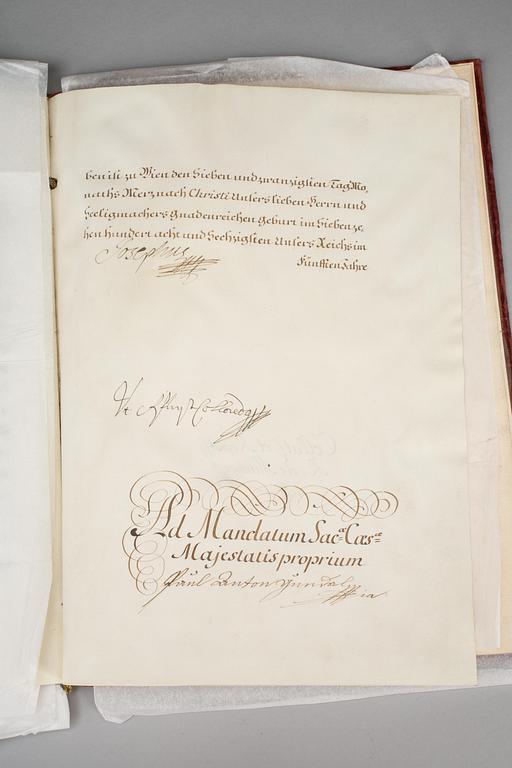 ben ist zu Wien den Sieben und zwanzigsten Tag Mo,
naths Merz nach Christi Unsers lieben Herrn und
Seeligmachers Gnadenreichen Geburt im Siebenze,
hen hundert acht und Sechzigsten Unsers Reichs im
Fünfften Jahre
Josephus
Vt Colloredo
Ad Mandatum Sac.æ Cæs.æ
Majestatis proprium
Paul Anton